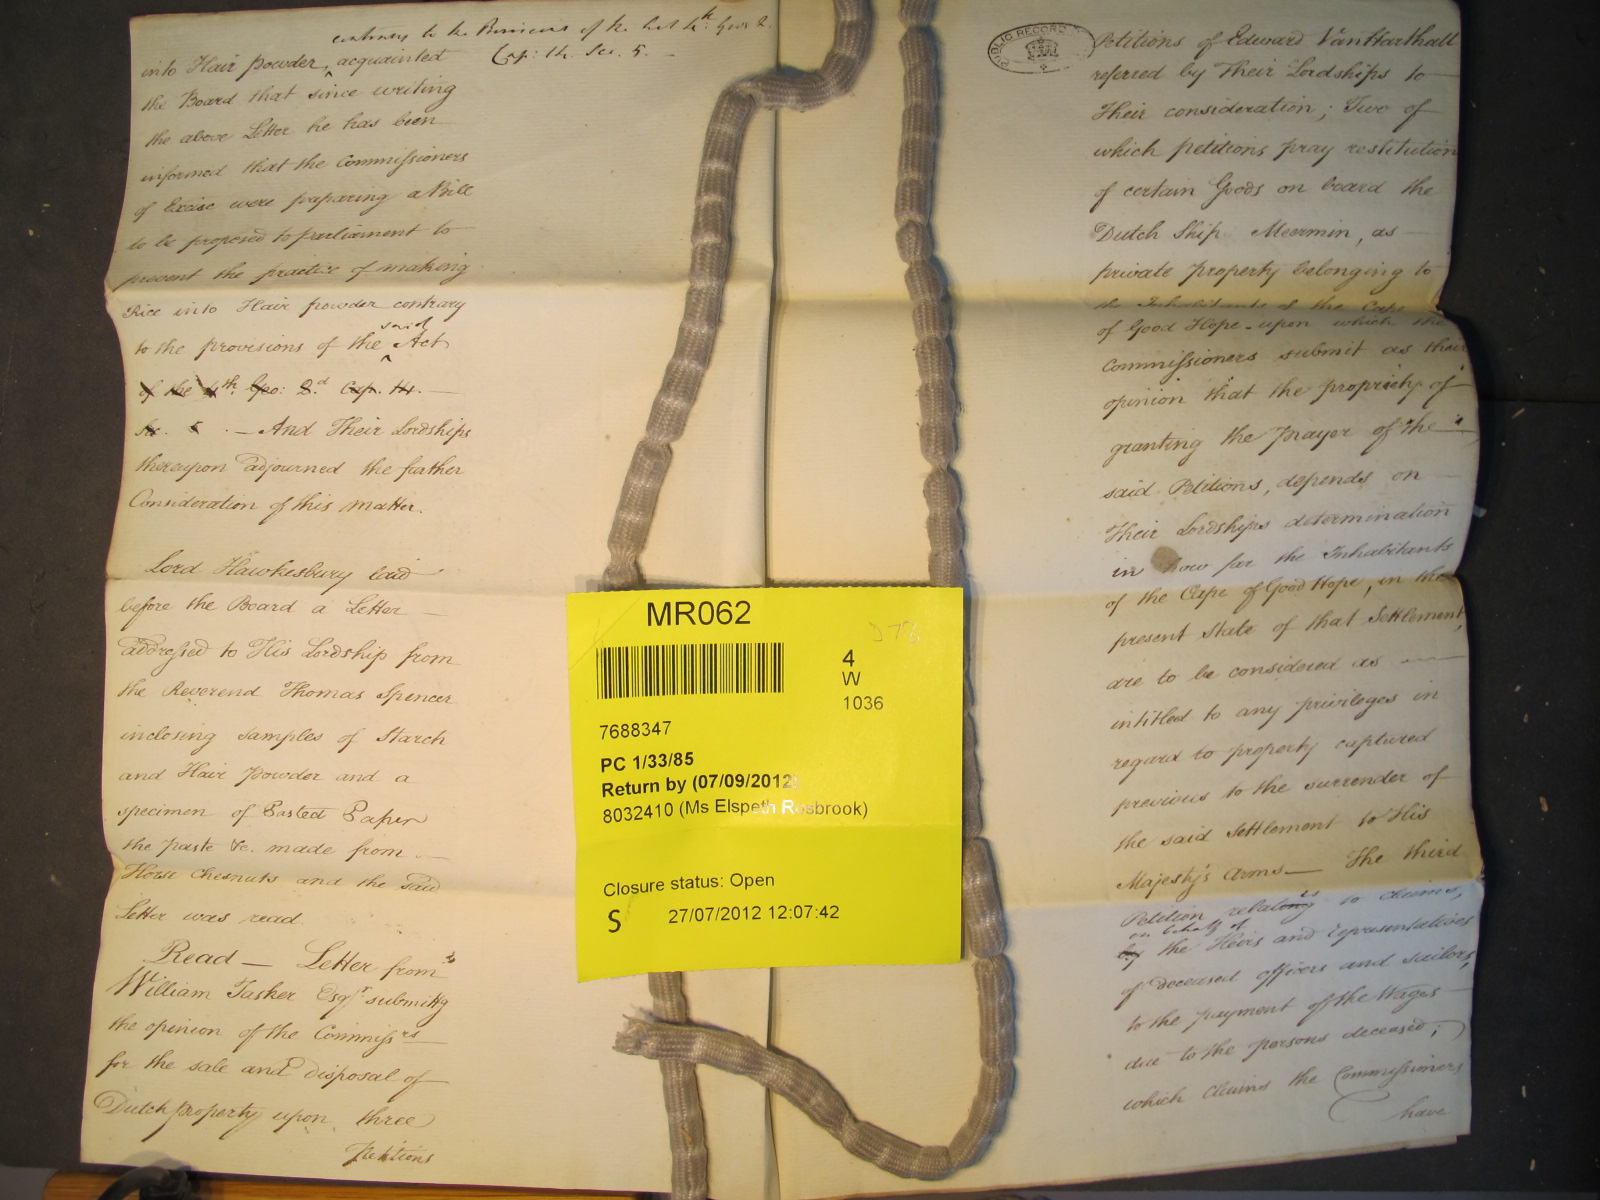 contrary to the Provisions of the Act 4th. Geo: 2.
Cap: 14. Sec. 5.
into Hair powder, acquainted
the Board that since writing
the above Letter he has been
informed that the Commissioners
of Excise were preparing a Bill
to be proposed to parliament to
prevent the practice of making
Rice into Hair powder contrary
said
to the provisions of the Act
of the 4th. Geo: 2.d Cap. 14.
Sec. 5. — And Their Lordships
thereupon adjourned the further
Consideration of this matter.
Lord Hawkesbury laid
before the Board a Letter
addressed to His Lordship from
the Reverend Thomas Spencer
inclosing samples of Starch
and Hair Powder and a
specimen of Pasted Paper
the paste &c. made from
Horse Chesnuts and the said
Letter was read.
Read — Letter from
William Tasker Esqr. submittg
the opinion of the Commissrs
for the sale and disposal of
Dutch property upon three
Petitions
PUBLIC RECORD
Petitions of Edward Van Harthall
referred by Their Lordships to
Their consideration; Two of
which petitions pray restitution
of certain Goods on board the
Dutch Ship Meermin, as
private property belonging to
the Inhabitants of the Cape
of Good Hope - upon which the
Commissioners submit as their
opinion that the propriety of
granting the Prayer of the
said Petitions, depends on
Their Lordships determination
in how far the Inhabitants
of the Cape of Good Hope, in the
present State of that Settlement,
are to be considered as
intitled to any privileges in
regard to property captured
previous to the surrender of
the said Settlement to His
Majesty's Arms — The third
Petition relates to claims,
on behalf of
by the Heirs and representatives
of deceased officers and sailors,
to the payment of the Wages
due to the persons deceased;
which claims the Commissioners
have
MR062
D78
4
W
1036
7688347
PC 1/33/85
Return by (07/09/2012)
8032410 (Ms Elspeth Rosbrook)
Closure status: Open
S 27/07/2012 12:07:42